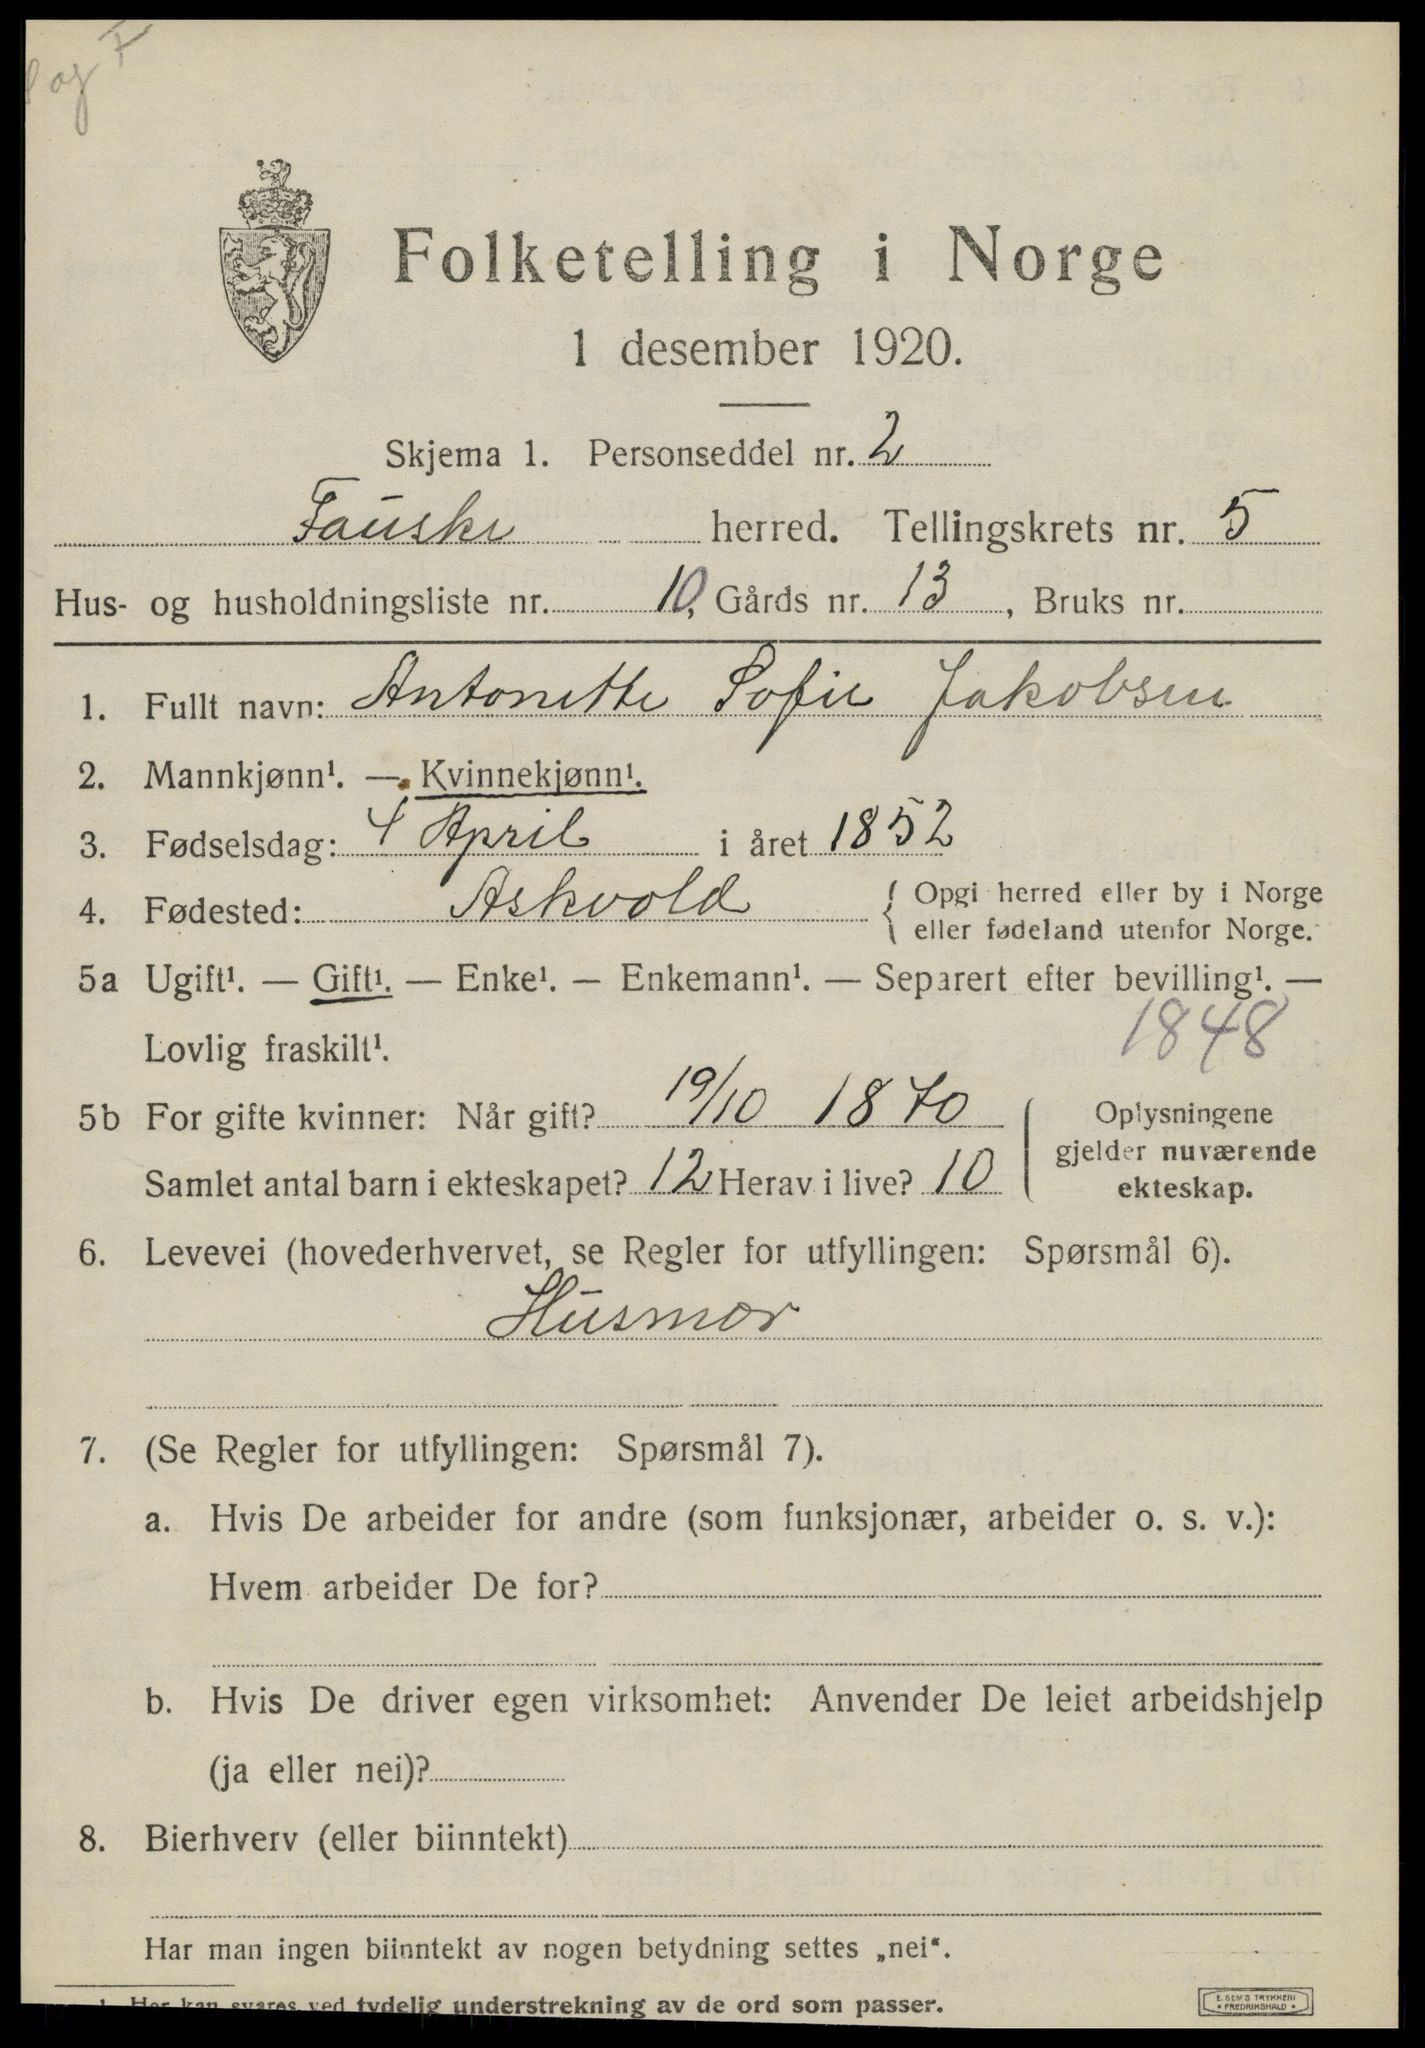 og F
Folketelling i Norge
1 desember 1920.
Skjema 1. Personseddel nr. 2
Fauske herred. Tellingskrets nr. 5
Hus- og husholdningsliste nr. 10, Gårds nr. 13, Bruks nr.
1. Fullt navn: Antonette Sofie Jakobsen
2. Mannkjønn¹. — Kvinnekjønn¹.
3. Fødselsdag: 4 April i året 1852
4. Fødested: Askvold { Opgi herred eller by i Norge
eller fødeland utenfor Norge.
5a Ugift¹. — Gift¹. — Enke¹. — Enkemann¹. — Separert efter bevilling¹. —
Lovlig fraskilt¹. 1848
5b For gifte kvinner: Når gift? 19/10 1870
Samlet antal barn i ekteskapet? 12 Herav i live? 10
Oplysningene
gjelder nuværende
ekteskap.
6. Levevei (hovederhvervet, se Regler for utfyllingen: Spørsmål 6).
Husmor
7. (Se Regler for utfyllingen: Spørsmål 7).
a. Hvis De arbeider for andre (som funksjonær, arbeider o. s. v.):
Hvem arbeider De for?
b. Hvis De driver egen virksomhet: Anvender De leiet arbeidshjelp
(ja eller nei)?
8. Bierhverv (eller biinntekt)
Har man ingen biinntekt av nogen betydning settes „nei“.
¹ Her kan svares ved tydelig understrekning av de ord som passer.
E. SEM'S TRYKKERI
• FREDRIKSHALD •